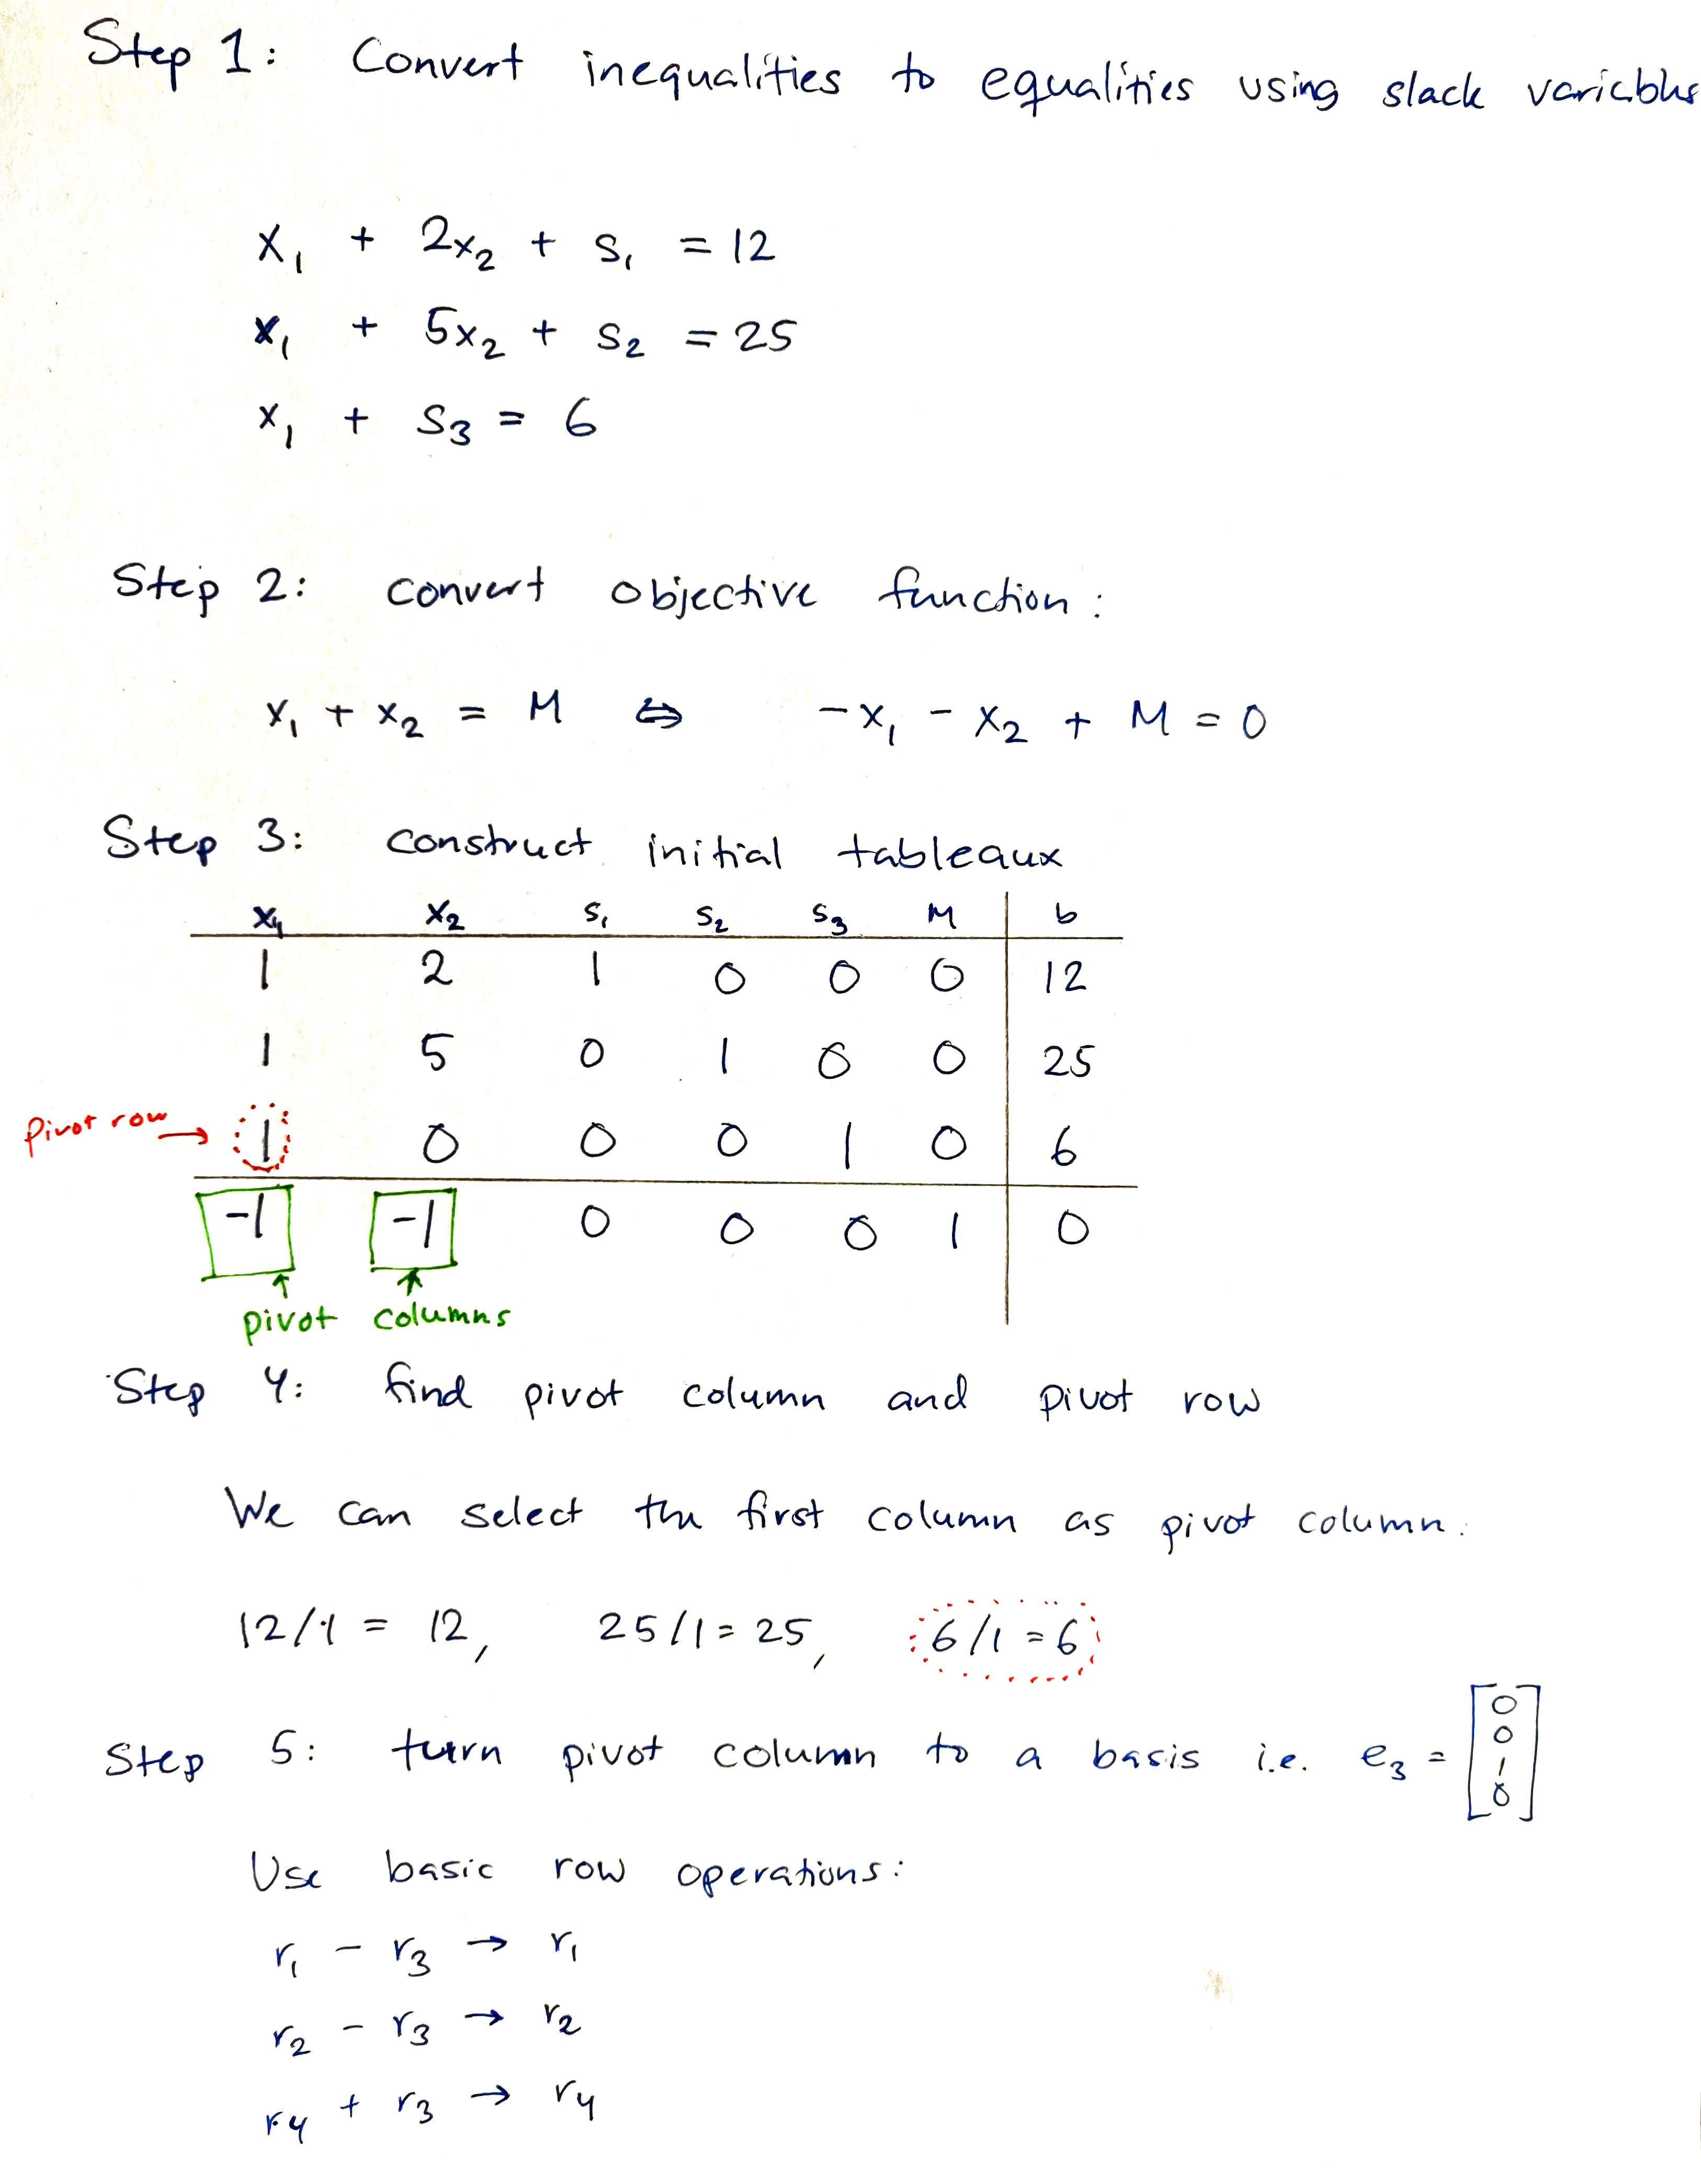 Step 1: Convert inequalities to equalities using slack variables
x₁ + 2x₂ + s₁ = 12
x₁ + 5x₂ + s₂ = 25
x₁ + s₃ = 6
Step 2: convert objective function:
x₁ + x₂ = M ⇔ -x₁ - x₂ + M = 0
Step 3: construct initial tableaux
x₁ x₂ s₁ s₂ s₃ M b
1 2 1 0 0 0 12
1 5 0 1 0 0 25
Pivot row → 1 0 0 0 1 0 6
-1 -1 0 0 0 1 0
pivot columns
Step 4: find pivot column and pivot row
We can select the first column as pivot column.
12/1 = 12, 25/1 = 25, 6/1 = 6
Step 5: turn pivot column to a basis i.e. e₃ = [0 0 1 0]
Use basic row operations:
r₁ - r₃ → r₁
r₂ - r₃ → r₂
r₄ + r₃ → r₄